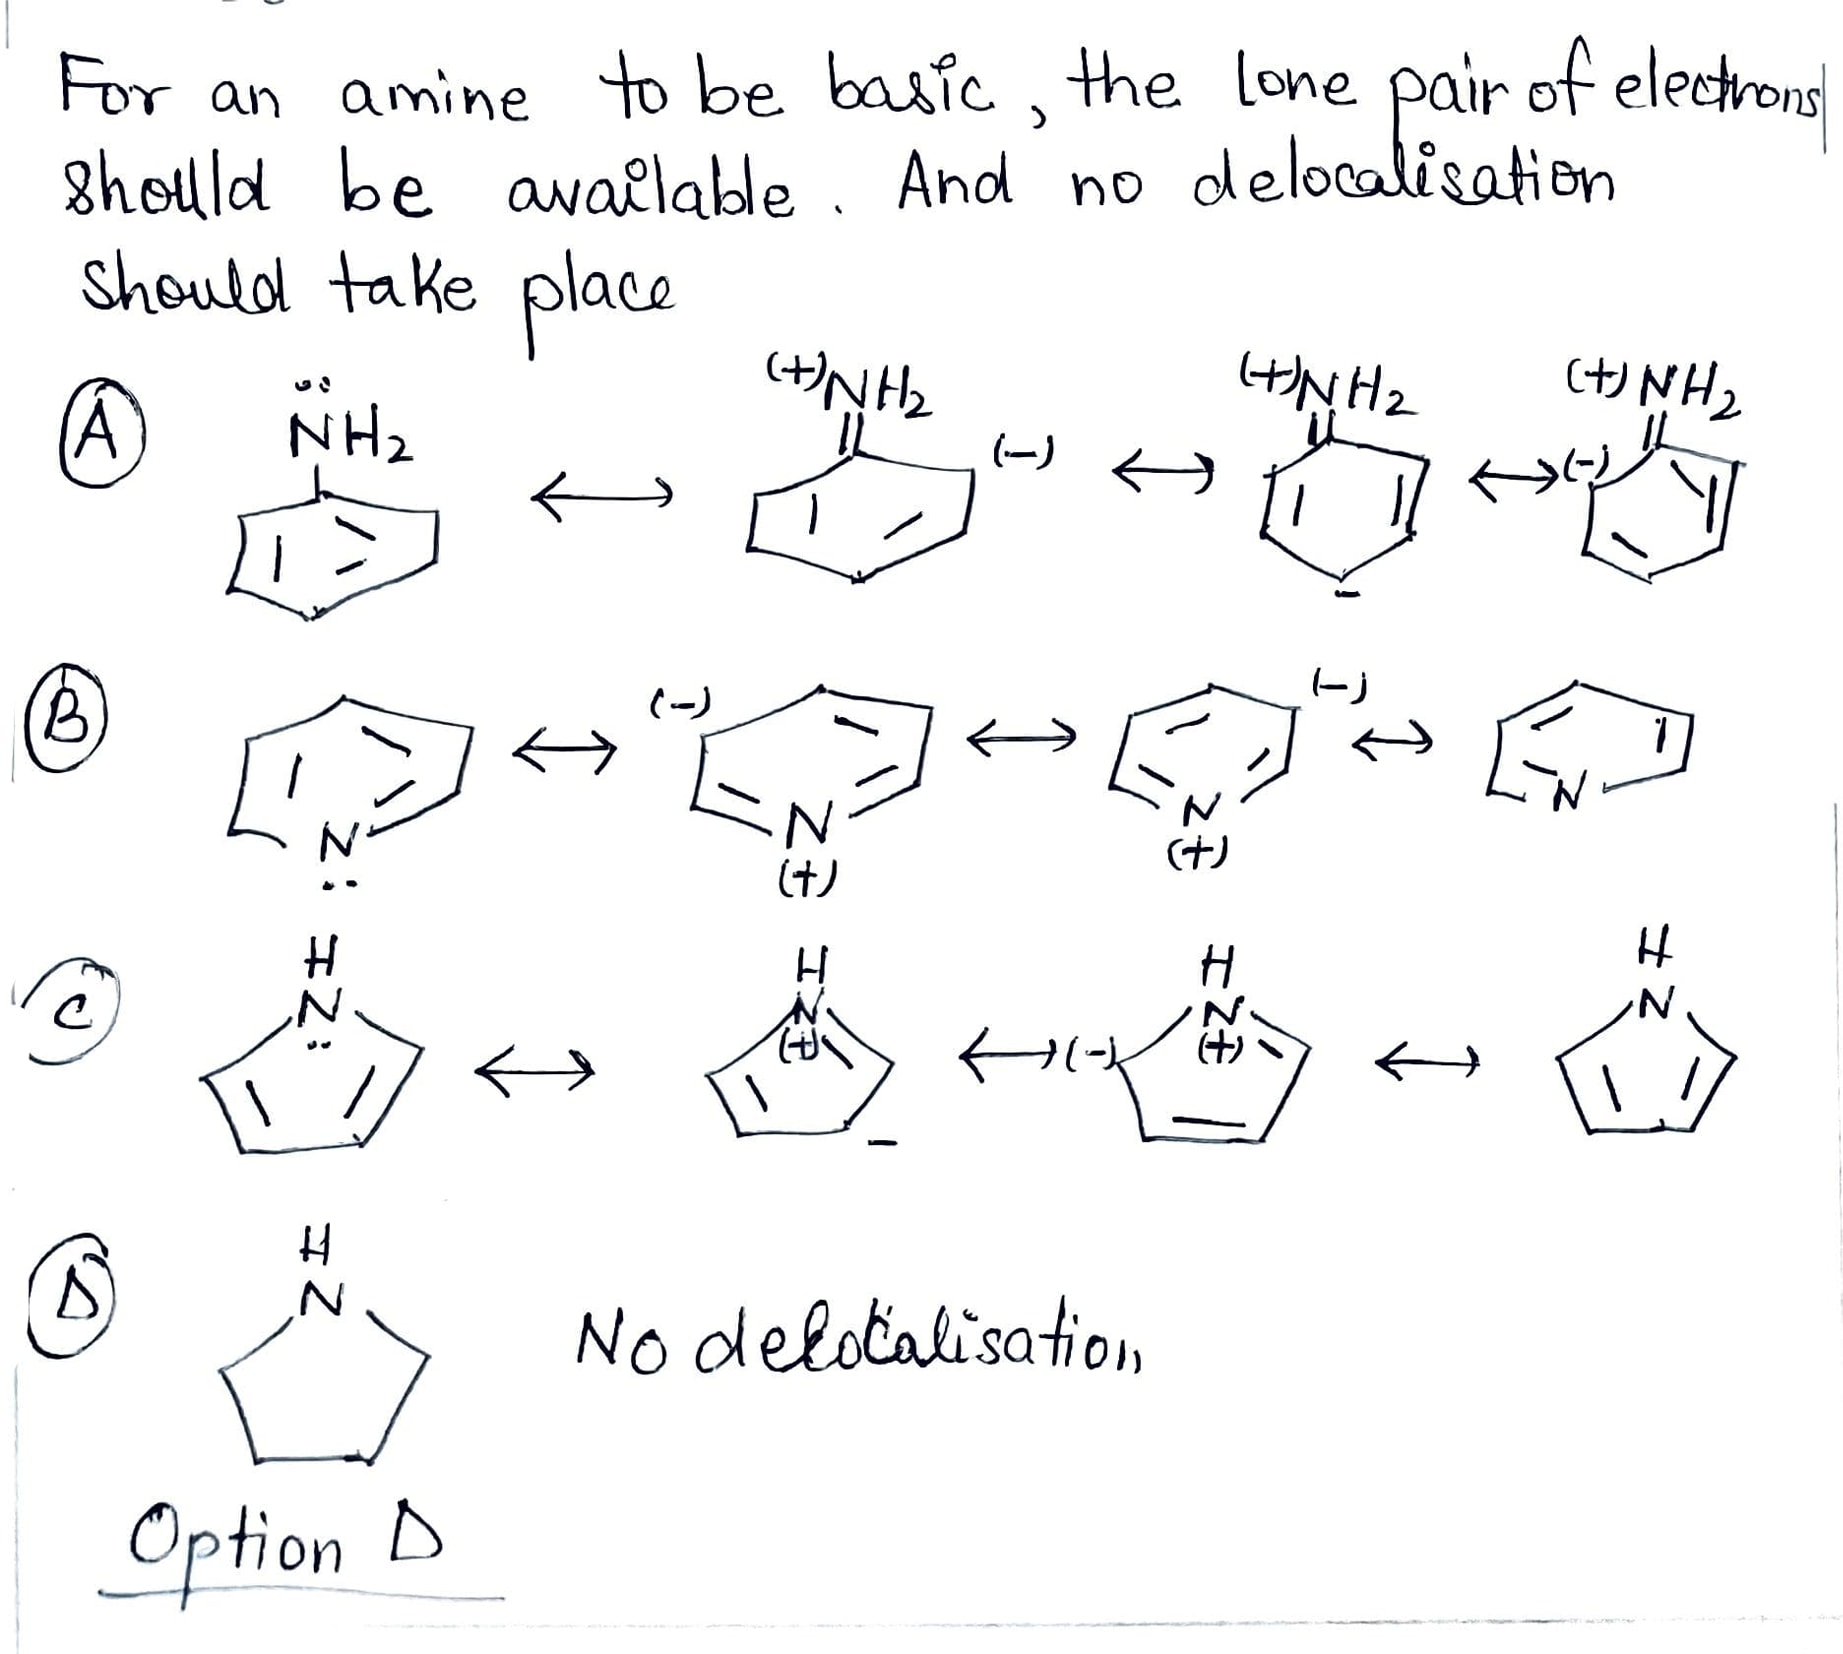 For an amine to be basic, the lone pair of electrons
should be available. And no delocalisation
should take place
A N̈H2 ↔ (+)NH2 (-) ↔ (+)NH2 - ↔ (+)NH2 (-)
B N̤ ↔ (-) N (+) ↔ N (+) (-) ↔ N
C H N̤ ↔ H N (+) - ↔ (-) H N (+) ↔ H N
D H N No delocalisation
Option D